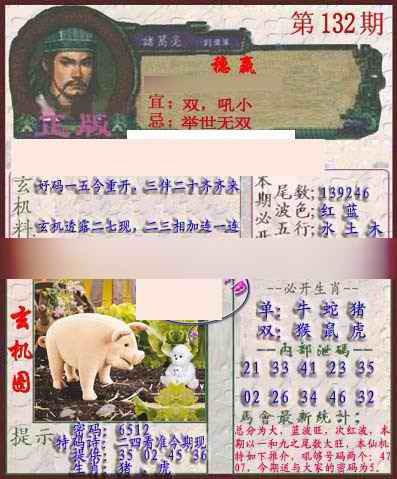 第132期
諸葛亮
稳赢
宜:双,吼小
忌:举世无双
正版
玄机料
好码一五今重开,三伴二十齐齐来
玄机透露二七现,二三相加连一连
本期必开
尾数:139246
波色:红 蓝
五行:水 土 木
玄机图
--必开生肖--
单:牛 蛇 猪
双:猴 鼠 虎
--内部泄码--
21 33 41 23 35
02 26 34 46 32
馬會最新统计:
总分为大,蓝波旺,次红波,本
期以一和九之尾数大旺,本仙机
特如下推介,吼够号码两个:47
07,今期送与大家的密码为5.
提示
密码:6512
特码诗:二四看准今期现
提供:35 02 45 36
生肖:猪、虎